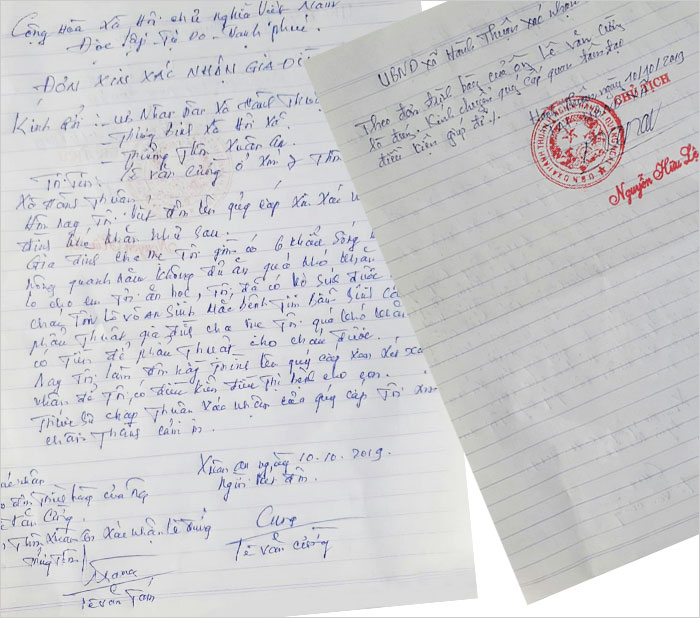 Cộng Hòa Xã Hội chủ nghĩa Việt Nam
Độc lập Tự Do Hạnh phúc
ĐƠN XIN XÁC NHẬN GIA
Kính gửi: Uỷ Nhân Dân Xã Hành Thuận
- Thương binh Xã Hội Xã
- Trưởng Thôn Xuân An
Lê Văn Cường ở Xóm 7 Thôn
Tôi tên:
Xã Hành Thuận
Hôm nay Tôi viết đơn lên quý cấp Xin Xác
đình khó khăn như sau.
Gia đình cha mẹ Tôi gồm có 6 khẩu sống
Nông quanh năm không đủ ăn quá khó khăn
lo cho em Tôi ăn học, Tôi đã có vợ sinh được
cháu Tên Lê Võ An Sinh Mắc bệnh Tim bẩm sinh
phẫu Thuật, gia đình cha mẹ Tôi quá khó khăn
có Tiền để phẫu Thuật cho cháu được.
Nay Tôi làm đơn này trình lên quý cấp xem xét
nhận để Tôi có điều kiện điều Trị bệnh cho con.
chấp Thuận Xác nhận của quý cấp Tôi xin
chân Thành cảm ơn.
Xuân An ngày 10.10.2019
Người viết đơn.
Cường
Lê Văn Cường
nhận
đơn trình bày của
Văn Cường
Thôn Xuân An Xác Nhận là đúng
Lê Văn Tám
UBND xã Hành Thuận xác nhận
Theo đơn trình bày của ông Lê Văn Cường
là đúng. Kính chuyển quý cấp quan tâm tạo
điều kiện giúp đỡ.
ngày 10/10/2019
CHỦ TỊCH
Nguyễn Hữu